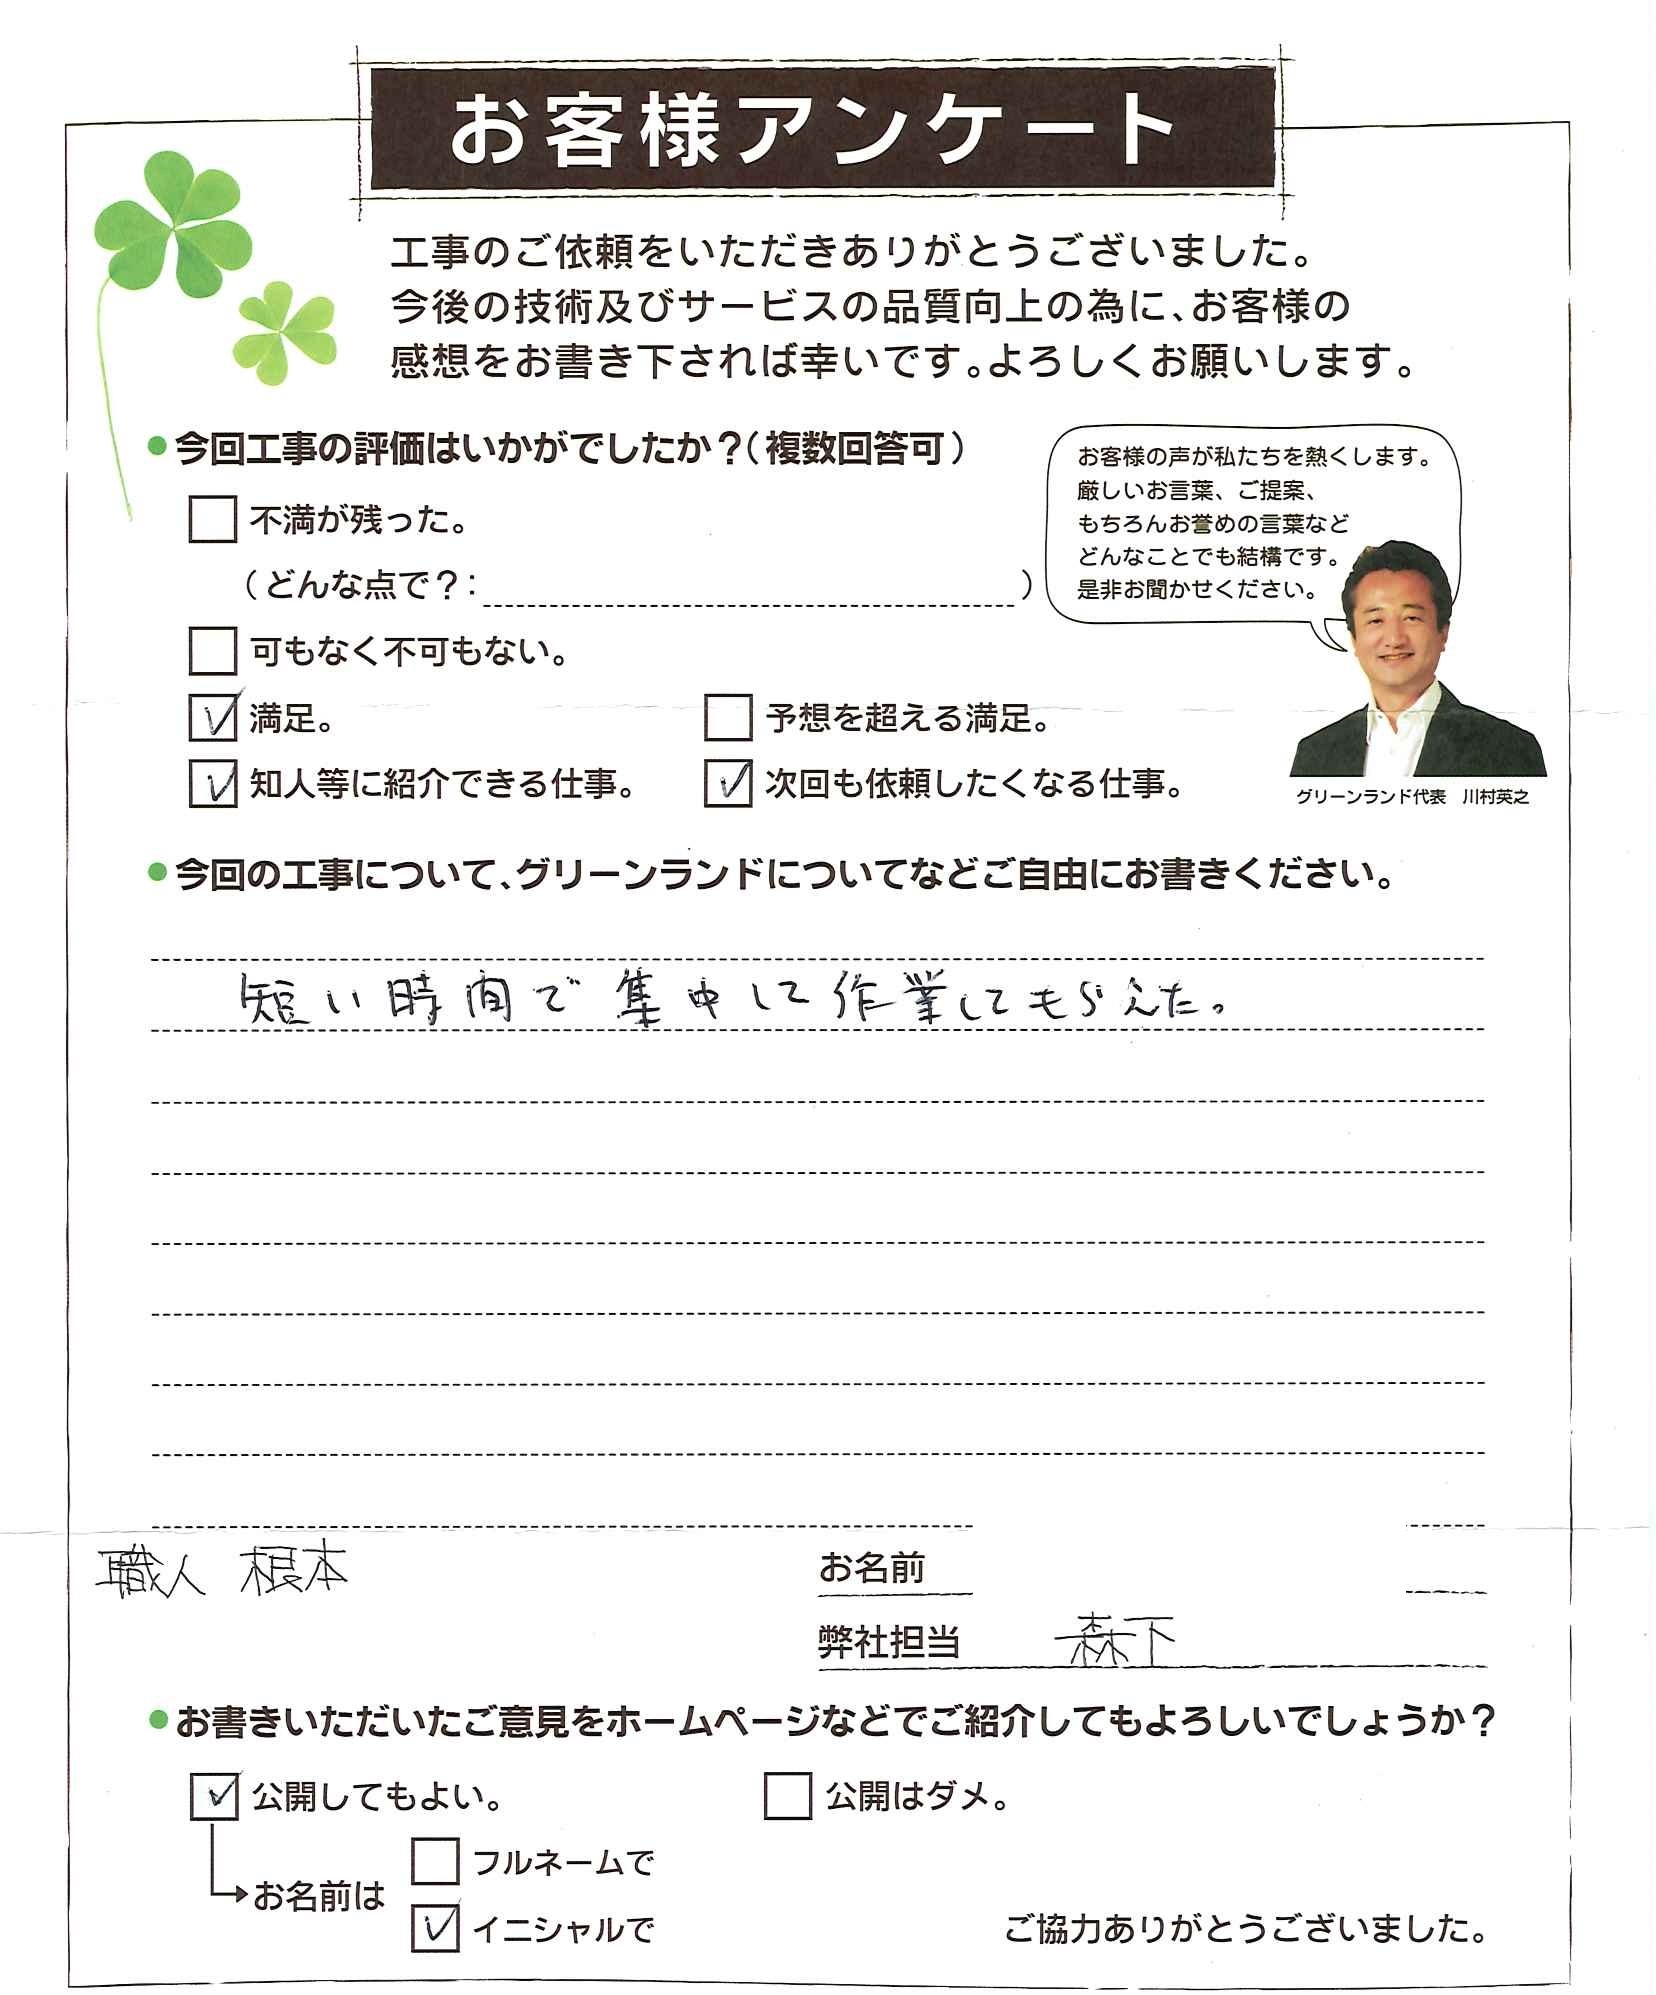 お客様アンケート
工事のご依頼をいただきありがとうございました。
今後の技術及びサービスの品質向上の為に、お客様の
感想をお書き下されば幸いです。よろしくお願いします。
●今回工事の評価はいかがでしたか？（複数回答可）
不満が残った。
（どんな点で？：）
可もなく不可もない。
満足。
予想を超える満足。
知人等に紹介できる仕事。
次回も依頼したくなる仕事。
お客様の声が私たちを熱くします。
厳しいお言葉、ご提案、
もちろんお誉めの言葉など
どんなことでも結構です。
是非お聞かせください。
グリーンランド代表　川村英之
●今回の工事について、グリーンランドについてなどご自由にお書きください。
短い時間で集中して作業してもらえた。
職人 根本
お名前
弊社担当 森下
●お書きいただいたご意見をホームページなどでご紹介してもよろしいでしょうか？
公開してもよい。
公開はダメ。
お名前は
フルネームで
イニシャルで
ご協力ありがとうございました。